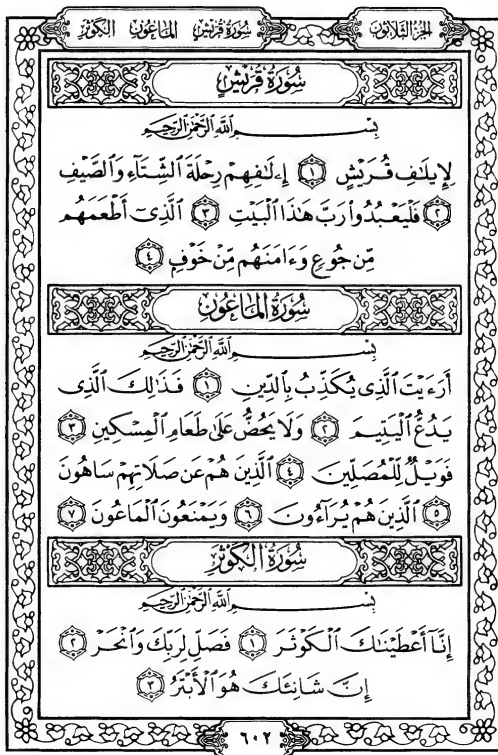 الجزء الثلاثون سُورَةُ قُرَيْشٍ المَاعُونِ الكَوْثَرِ
سُورَةُ قُرَيْشٍ
بِسْمِ اللَّهِ الرَّحْمَٰنِ الرَّحِيمِ
لِإِيلَٰفِ قُرَيْشٍ ١ إِۦلَٰفِهِمْ رِحْلَةَ ٱلشِّتَآءِ وَٱلصَّيْفِ
٢ فَلْيَعْبُدُوا۟ رَبَّ هَٰذَا ٱلْبَيْتِ ٣ ٱلَّذِىٓ أَطْعَمَهُم
مِّن جُوعٍ وَءَامَنَهُم مِّنْ خَوْفٍۭ ٤
سُورَةُ المَاعُونِ
بِسْمِ اللَّهِ الرَّحْمَٰنِ الرَّحِيمِ
أَرَءَيْتَ ٱلَّذِى يُكَذِّبُ بِٱلدِّينِ ١ فَذَٰلِكَ ٱلَّذِى
يَدُعُّ ٱلْيَتِيمَ ٢ وَلَا يَحُضُّ عَلَىٰ طَعَامِ ٱلْمِسْكِينِ ٣
فَوَيْلٌ لِّلْمُصَلِّينَ ٤ ٱلَّذِينَ هُمْ عَن صَلَاتِهِمْ سَاهُونَ
٥ ٱلَّذِينَ هُمْ يُرَآءُونَ ٦ وَيَمْنَعُونَ ٱلْمَاعُونَ ٧
سُورَةُ الكَوْثَرِ
بِسْمِ اللَّهِ الرَّحْمَٰنِ الرَّحِيمِ
إِنَّآ أَعْطَيْنَٰكَ ٱلْكَوْثَرَ ١ فَصَلِّ لِرَبِّكَ وَٱنْحَرْ ٢
إِنَّ شَانِئَكَ هُوَ ٱلْأَبْتَرُ ٣
٦٠٢